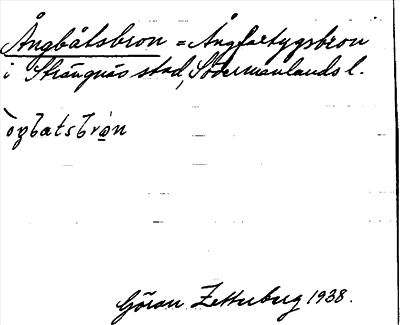 Ångbåtsbron = Ångfartygsbron
i Strängnäs stad, Södermanlands l.
òŋbatsbrò̱n
Göran Zetterberg 1938.